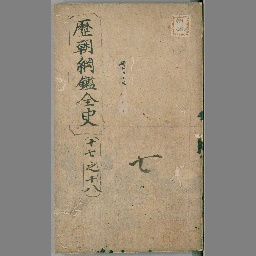 歷朝綱鑑全史
十七之十八
七